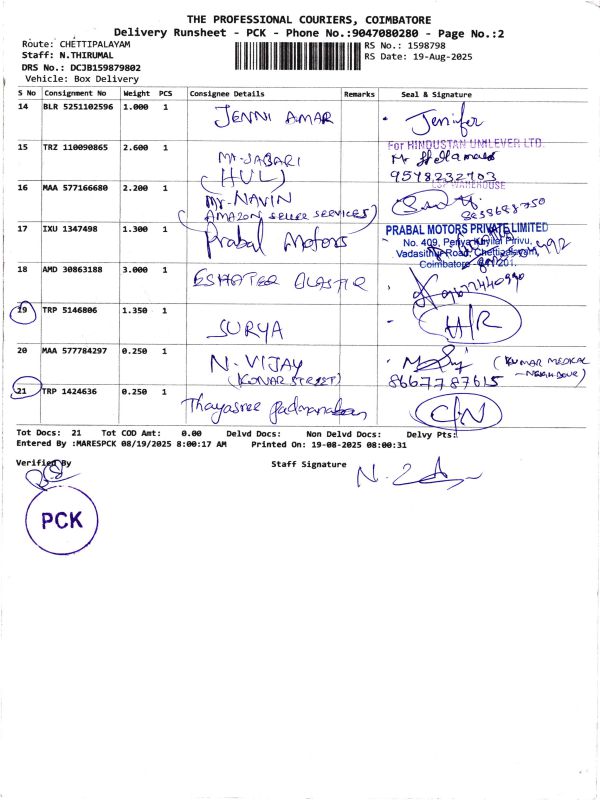 THE PROFESSIONAL COURIERS, COIMBATORE
Delivery Runsheet - PCK - Phone No.:9047080280 - Page No.:2
Route: CHETTIPALAYAM RS No.: 1598798
Staff: N.THIRUMAL RS Date: 19-Aug-2025
DRS No.: DCJB159879802
Vehicle: Box Delivery
S No Consignment No Weight PCS Consignee Details Remarks Seal & Signature
14 BLR 5251102596 1.000 1 JENNI AMAR Jenifer
15 TRZ 110090865 2.600 1 Mr. JABARI For HINDUSTAN UNILEVER LTD.
(HUL) 9578232703
LSP WAREHOUSE
16 MAA 577166680 2.200 1 Mr. NAVIN
(AMAZON SELLER SERVICES)
17 IXU 1347498 1.300 1 Prabal Motors PRABAL MOTORS PRIVATE LIMITED
No. 409, Periya Kuyilai Pirivu,
Vadasithur Road, Chettipalayam,
Coimbatore - 641 201.
18 AMD 30863188 3.000 1
19 TRP 5146806 1.350 1 SURYA H/R
20 MAA 577784297 0.250 1 N. VIJAY (KUMAR MEDICAL
(KONAR STREET) 8667787615 - NEIGHBOUR)
21 TRP 1424636 0.250 1 Thayasree Padmanaban C/N
Tot Docs: 21 Tot COD Amt: 0.00 Delvd Docs: Non Delvd Docs: Delvy Pts:
Entered By :MARESPCK 08/19/2025 8:00:17 AM Printed On: 19-08-2025 08:00:31
Verified By Staff Signature
PCK